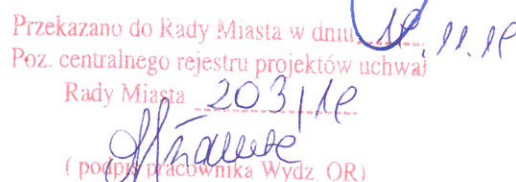 Przekazano do Rady Miasta w dniu
Poz. centralnego rejestru projektów uchwał
Rady Miasta 203/
( podpis pracownika Wydz. OR)